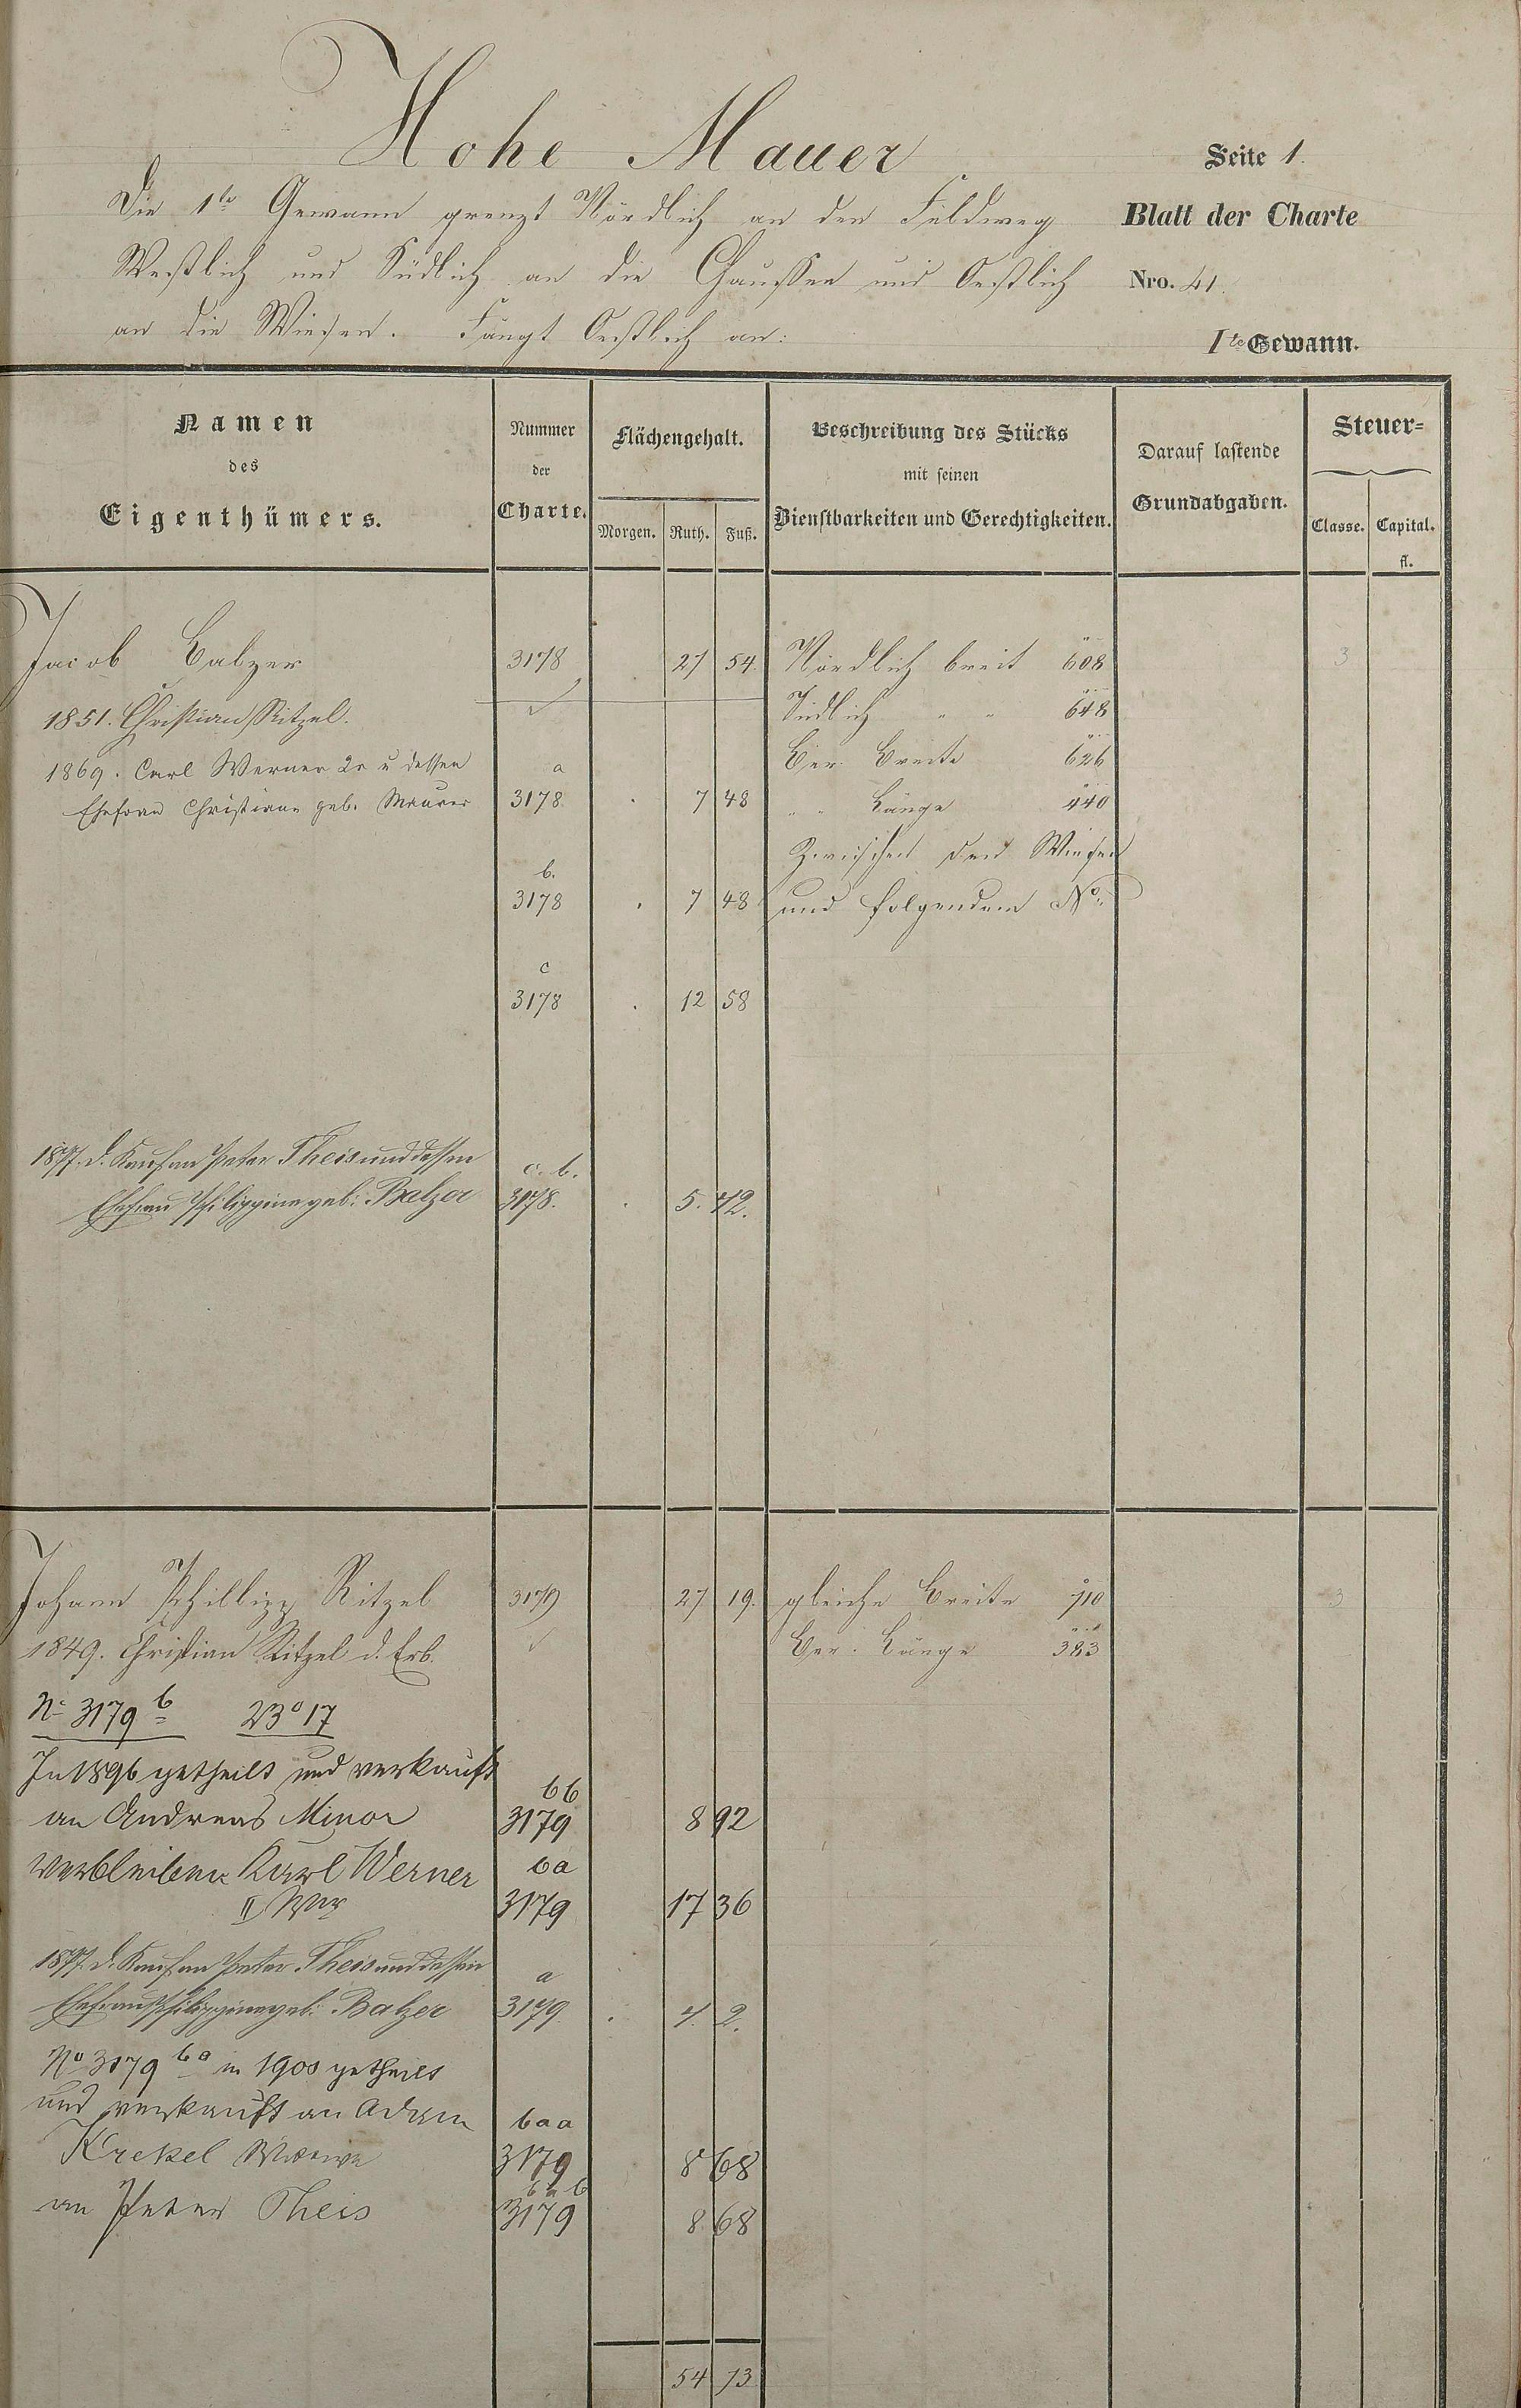 Hohe Mauer
Seite 1.
Die 1te Gewann grenzt Nördlich an den Feldweg
Blatt der Charte
Westlich und Südlich an die Chaussee und Oestlich
Nro. 41.
an die Wiesen. Fängt Oestlich an:
Ite Gewann.
Namen
des
Eigenthümers.
Nummer
der
Charte.
Flächengehalt.
Morgen. Ruth. Fuß.
Beschreibung des Stücks
mit seinen
Dienstbarkeiten und Gerechtigkeiten.
Darauf lastende
Grundabgaben.
Steuer-
Classe. Capital.
fl.
Jacob Balzer 3178 27 54. Nördlich breit 608 3
1851. Christian Ritzel. Südlich " " 648
1869. Carl Werner 2r u dessen a Ber. Breite 626
Ehefrau Christiane geb. Maurer 3178 . 7 48 " " Länge 440
Zwischen den Wiesen
b.
3178 . 7 48 und folgendem No.
c
3178 . 12 58
1897. d. Kaufm Peter Theis und dessen c. b.
Ehefrau Philippine geb: Balzer 3178. . 5. 72.
Johann Phillipp Ritzel 3179 27 19. gleiche Breite 710 3
1849. Christian Ritzel d. Erb. Ber. Länge 383
No 3179 b 23° 17
In 1896 getheilt und verkauft bb
an Andreas Minor 3179 8 92
verbleiben Karl Werner ba
II 3179 17 36
1897. d. Kaufm Peter Theis und dessen a
Ehefrau Philippine geb: Balzer 3179. . 4. 2.
No 3179 ba in 1900 getheilt
und verkauft an Adam baa
Krekel Wittwe 3179 8 68
bab
an Peter Theis 3179 8 68
54 73